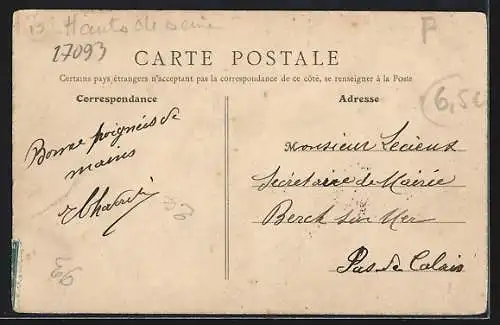 Hauts de Seine
27093
P
CARTE POSTALE
Certains pays étrangers n'acceptant pas la correspondance de ce côté, se renseigner à la Poste
Correspondance
Bonne poignées de
mains
Adresse
6,50
Monsieur Lecieux
Secrétaire de Mairie
Berck sur Mer
Pas de Calais